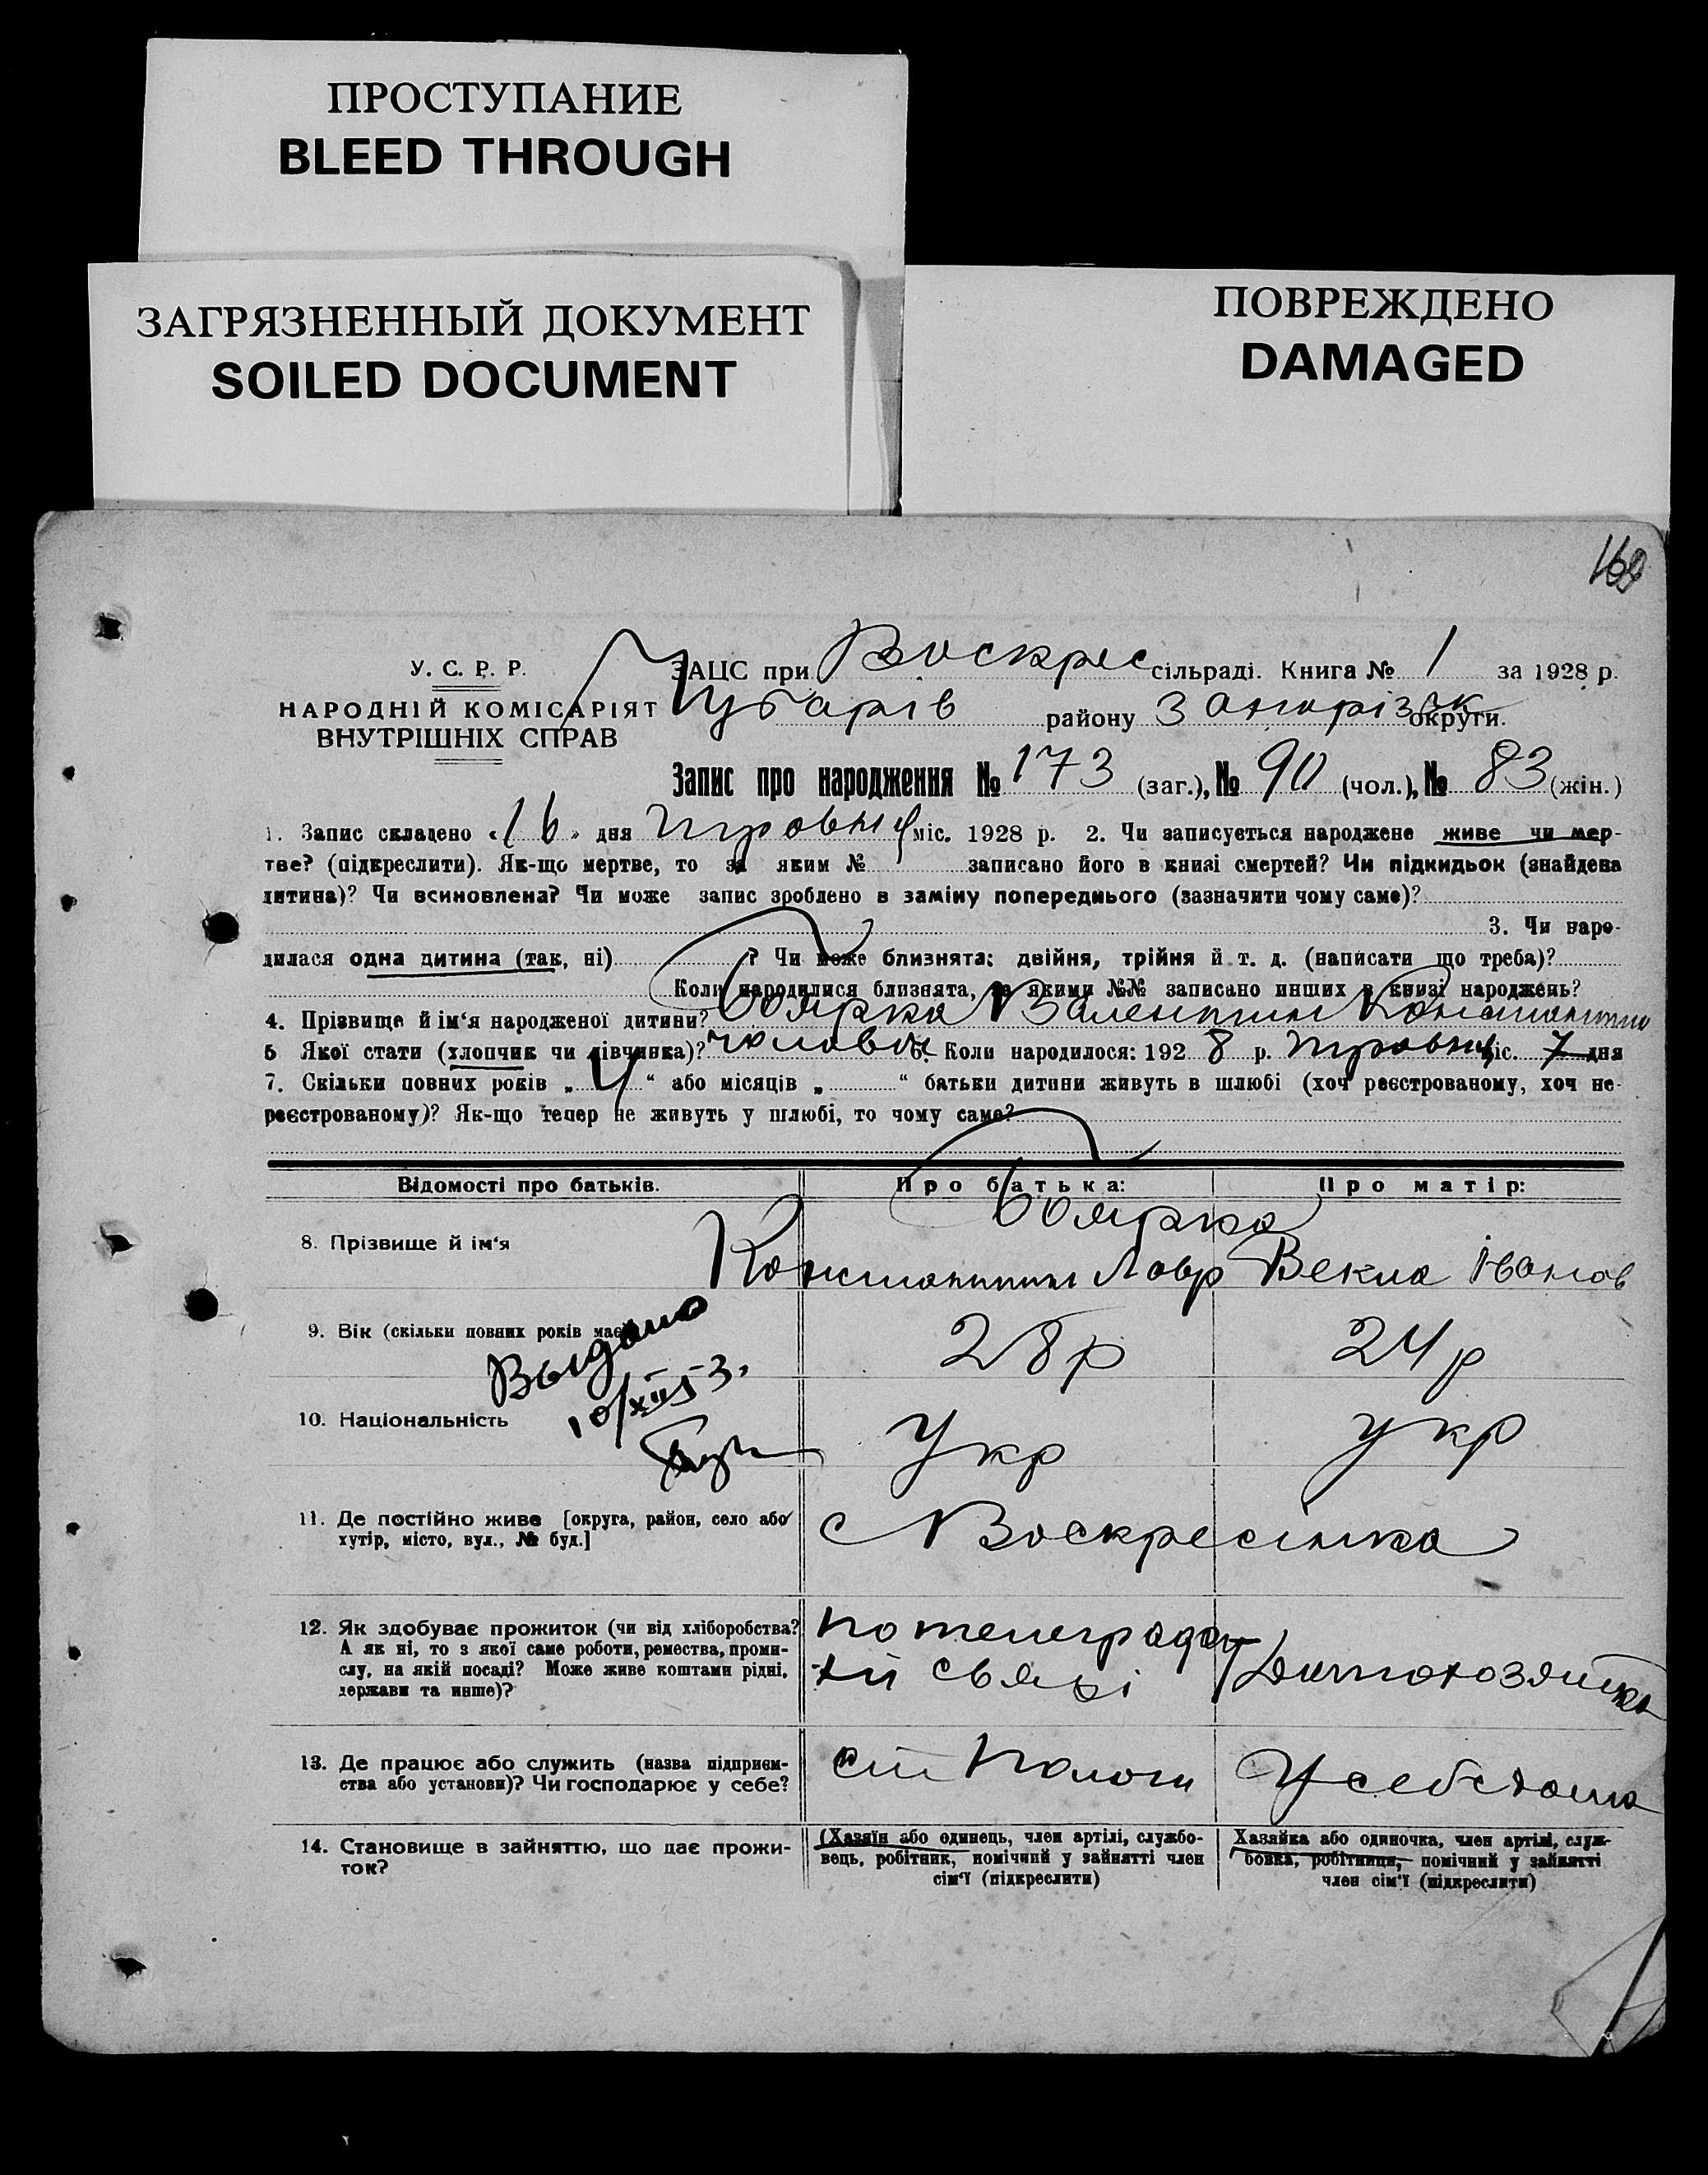 ПРОСТУПАНИЕ
BLEED THROUGH
ЗАГРЯЗНЕННЫЙ ДОКУМЕНТ
SOILED DOCUMENT
ПОВРЕЖДЕНО
DAMAGED
У. С. Р. Р.
НАРОДНІЙ КОМІСАРІЯТ
ВНУТРІШНІХ СПРАВ
ЗАЦС при Воскрес сільраді. Книга № 1 за 1928 р.
Чубарів району Запорізьк округи.
Запис про народження № 173 (заг.), № 90 (чол.), № 83 (жін.)
1. Запис складено «16» дня травня міс. 1928 р. 2. Чи записується народжене живе чи мер-
тве? (підкреслити). Як-що мертве, то за яким № записано його в книзі смертей? Чи підкидьок (знайдена
дитина)? Чи всиновлена? Чи може запис зроблено в заміну попереднього (зазначити чому саме)?
3. Чи наро-
дилася одна дитина (так, ні) ? Чи може близнята: двійня, трійня й т. д. (написати що треба)?
Коли народилися близнята, за якими №№ записано инших в книзі народжень?
4. Прізвище й ім'я народженої дитини? Боярка Валентин Константин
5 Якої стати (хлопчик чи дівчинка)? чоловік 6. Коли народилося: 192 8 р. травня міс. 7 дня
7. Скільки повних років „ 4 “ або місяців „ “ батьки дитини живуть в шлюбі (хоч реєстрованому, хоч не-
реєстрованому)? Як-що тепер не живуть у шлюбі, то чому саме?
Відомості про батьків. Про батька: Про матір:
Боярка
8. Прізвище й ім'я Константин Лавр Векла Іванов
9. Вік (скільки повних років має) 28 р 24 р
Выдано
10/XII 53.
10. Національність Укр укр
11. Де постійно живе [округа, район, село або
хутір, місто, вул., № буд.]
с Воскресінка
12. Як здобуває прожиток (чи від хліборобства?
А як ні, то з якої саме роботи, ремества, проми-
слу, на якій посаді? Може живе коштами рідні,
держави та инше)?
по телеграфн
ій связі
Домохозяйка
13. Де працює або служить (назва підприєм-
ства або установи)? Чи господарює у себе?
ст Пологи
У себе дома
14. Становище в зайняттю, що дає прожи-
ток?
(Хазяїн або одинець, член артілі, службо-
вець, робітник, помічний у зайнятті член
сім'ї (підкреслити)
Хазяйка або одиночка, член артілі, служ-
бовка, робітниця, помічний у зайнятті
член сім'ї (підкреслити)